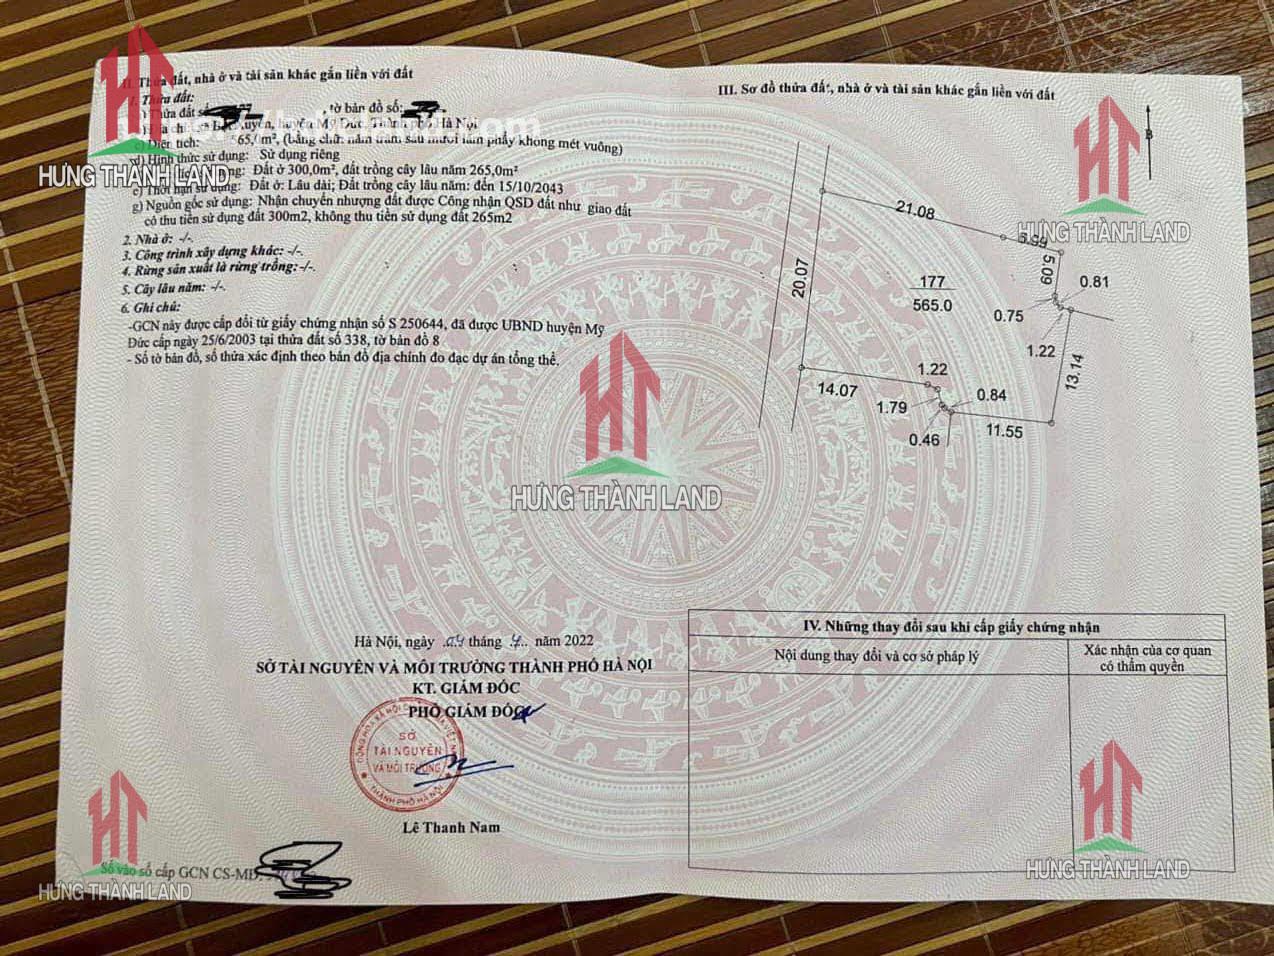 II. Thửa đất, nhà ở và tài sản khác gắn liền với đất
1. Thửa đất:
Thửa đất số tờ bản đồ số:
huyện Mỹ Đức, Thành phố Hà Nội
c) Diện tích: 565,0m², (bằng chữ: năm trăm sáu mươi lăm phẩy không mét vuông)
d) Hình thức sử dụng: Sử dụng riêng
Đất ở 300,0m², đất trồng cây lâu năm 265,0m²
e) Thời hạn sử dụng: Đất ở: Lâu dài; Đất trồng cây lâu năm: đến 15/10/2043
g) Nguồn gốc sử dụng: Nhận chuyển nhượng đất được Công nhận QSD đất như giao đất
có thu tiền sử dụng đất 300m2, không thu tiền sử dụng đất 265m2
2. Nhà ở: -/-.
3. Công trình xây dựng khác: -/-.
4. Rừng sản xuất là rừng trồng: -/-.
5. Cây lâu năm: -/-.
6. Ghi chú:
-GCN này được cấp đổi từ giấy chứng nhận số S 250644, đã được UBND huyện Mỹ
Đức cấp ngày 25/6/2003 tại thửa đất số 338, tờ bản đồ 8
- Số tờ bản đồ, số thửa xác định theo bản đồ địa chính đo đạc dự án tổng thể.
Hà Nội, ngày 04 tháng 7 năm 2022
SỞ TÀI NGUYÊN VÀ MÔI TRƯỜNG THÀNH PHỐ HÀ NỘI
KT. GIÁM ĐỐC
PHÓ GIÁM ĐỐC
SỞ
TÀI NGUYÊN
VÀ MÔI TRƯỜNG
THÀNH PHỐ HÀ NỘI
Lê Thanh Nam
Số vào sổ cấp GCN CS-MĐ:
III. Sơ đồ thửa đất, nhà ở và tài sản khác gắn liền với đất
B
21.08
5.09
0.81
20.07
177
565.0
0.75
1.22
13.14
1.22
14.07
1.79
0.84
0.46
11.55
IV. Những thay đổi sau khi cấp giấy chứng nhận
Nội dung thay đổi và cơ sở pháp lý
Xác nhận của cơ quan
có thẩm quyền
HƯNG THÀNH LAND
HƯNG THÀNH LAND
HƯNG THÀNH LAND
HƯNG THÀNH LAND
HƯNG THÀNH LAND